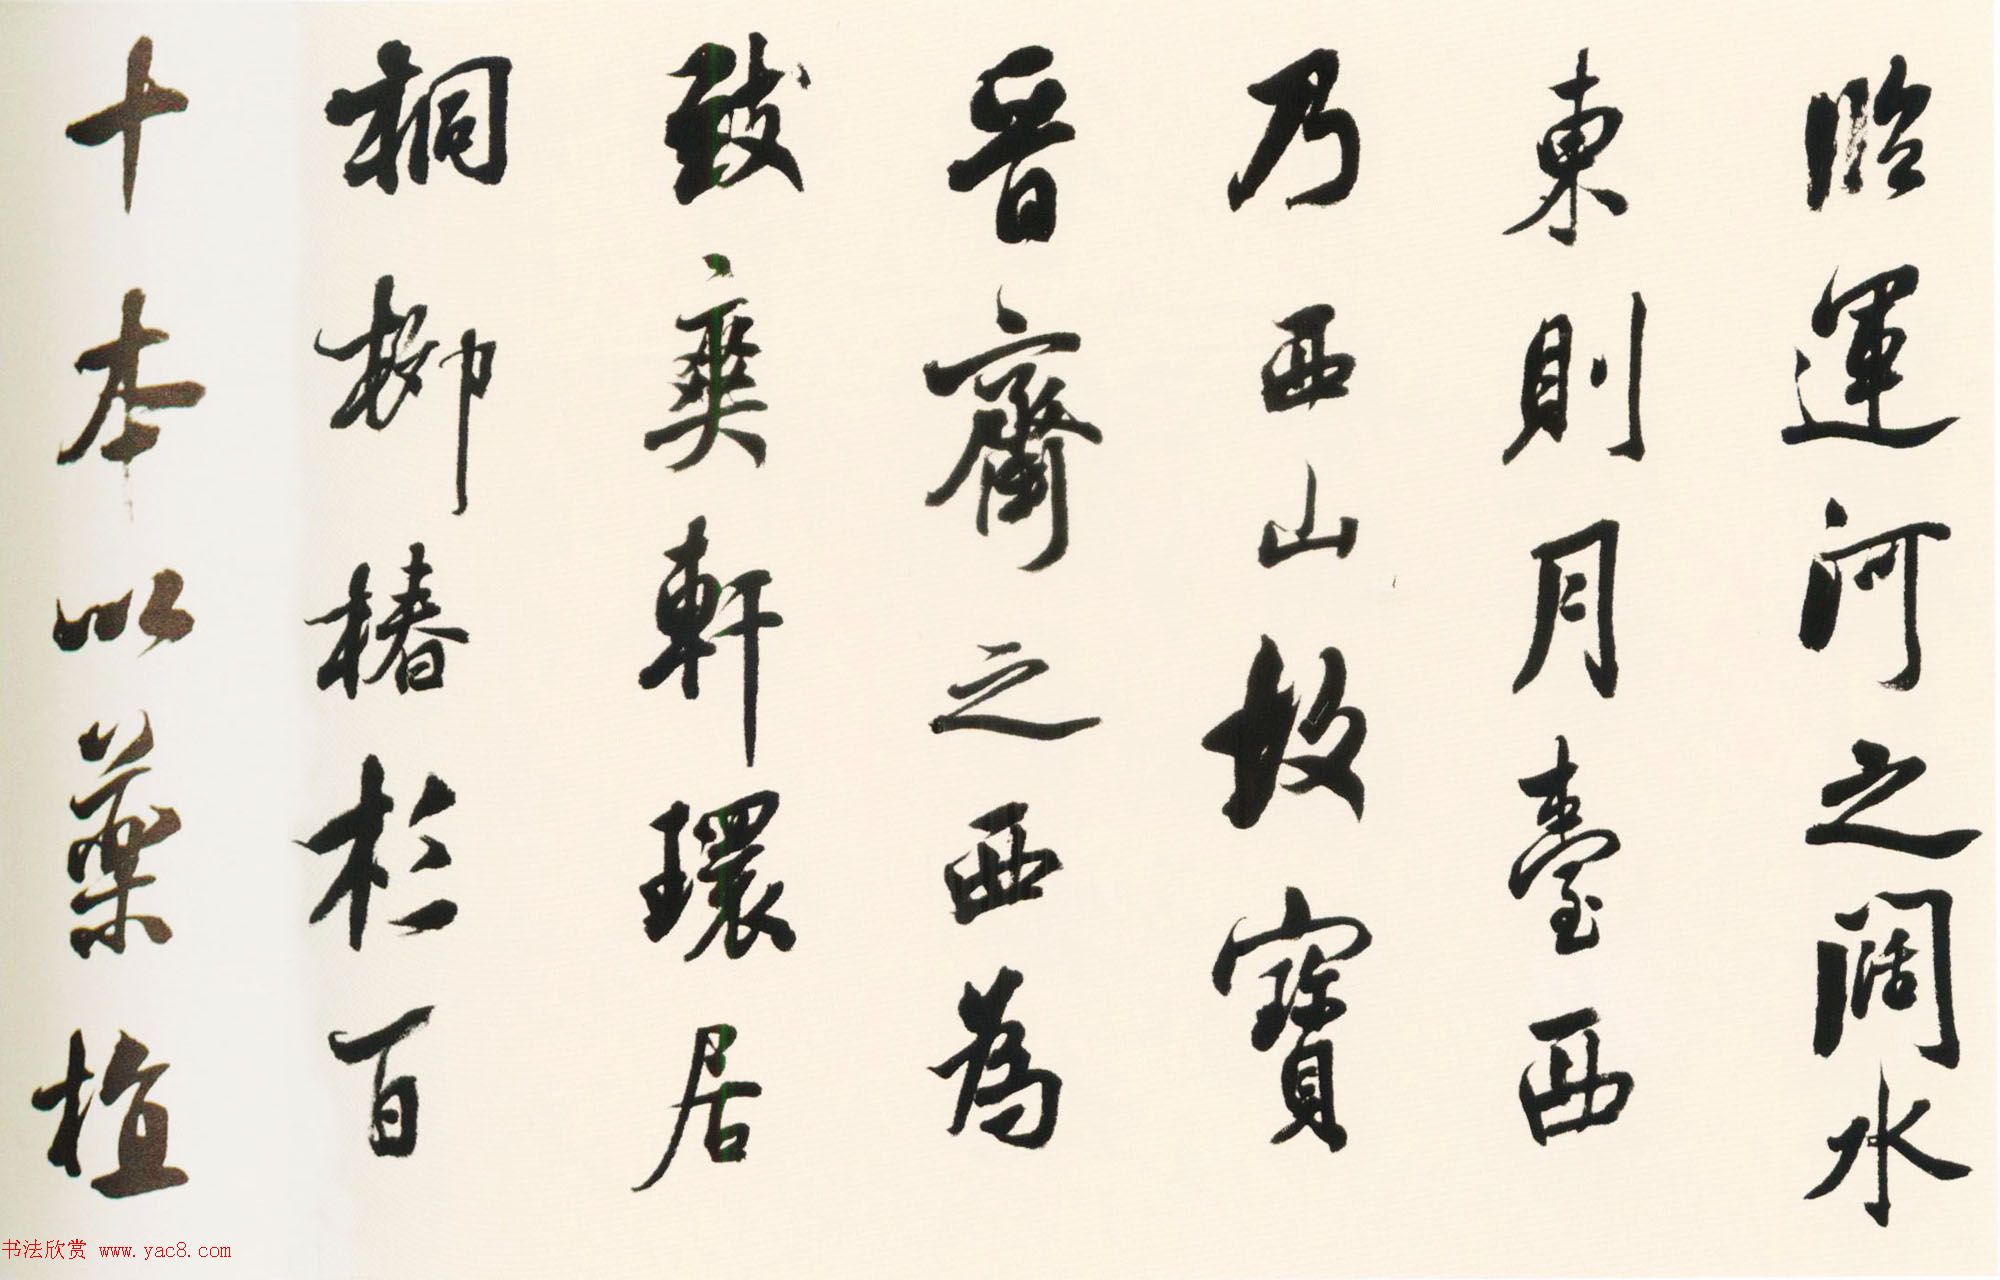 臨運河之闊水
東則月臺西
乃西山故寶
晉齋之西為
致爽軒環居
桐柳椿杉百
十本以藥植
书法欣赏 www.yac8.com